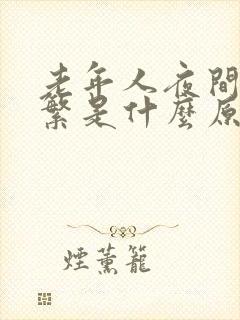 老年人夜間
繁是什麼原
煙薰籠